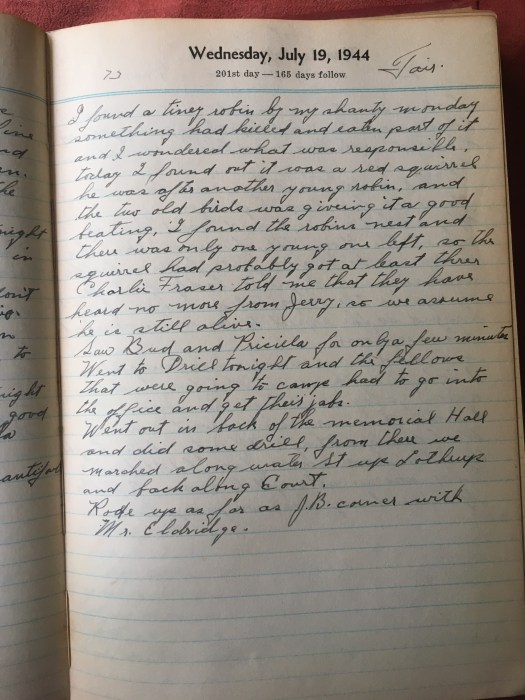 Wednesday, July 19, 1944
73
201st day — 165 days follow
Fair.
I found a tiney robin by my shanty monday
something had killed and eaten part of it
and I wondered what was responsible.
today I found out it was a red squirrel
he was after another young robin, and
the two old birds was giveing it a good
beating. I found the robins nest and
there was only one young one left, so the
squirrel had probably got at least three
Charlie Fraser told me that they have
heard no more from Jerry, so we assume
he is still alive.
Saw Bud and Pricilla for only a few minutes
Went to Drill tonight and the fellows
that were going to camp had to go into
the office and get their jabs.
Went out in back of the memorial Hall
and did some drill, from there we
marched along water St up Lothrup
and back along Court.
Rode up as far as J.B. corner with
Mr. Eldridge.
ine
nd
the
night
in
don't
to
night
good